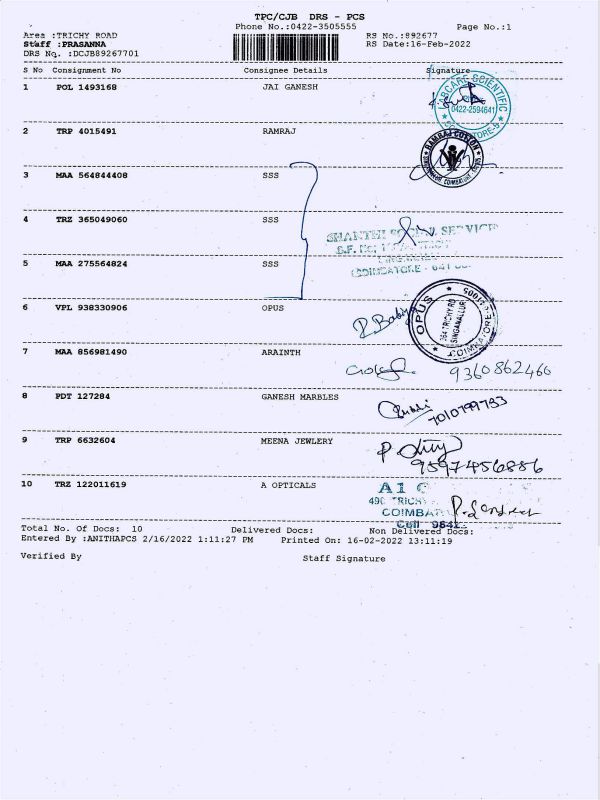 TPC/CJB DRS - PCS
Phone No.:0422-3505555
Page No.:1
Area :TRICHY ROAD
RS No.:892677
Staff :PRASANNA
RS Date:16-Feb-2022
DRS No. :DCJB89267701
S No Consignment No Consignee Details Signature
1 POL 1493168 JAI GANESH
LABCARE SCIENTIFIC
0422-2594641
2 TRP 4015491 RAMRAJ
RAMRAJ COTTON
3 MAA 564844408 SSS
4 TRZ 365049060 SSS
SHANTHI SOCIAL SERVICE
5 MAA 275564824 SSS
COIMBATORE - 641
6 VPL 938330906 OPUS
OPUS
364 TRICHY RD
SINGANALLUR
COIMBATORE
7 MAA 856981490 ARAINTH
9360862466
8 PDT 127284 GANESH MARBLES
7010799733
9 TRP 6632604 MEENA JEWLERY
9597456886
10 TRZ 122011619 A OPTICALS
A1
Total No. Of Docs: 10 Delivered Docs: Non Delivered Docs:
Entered By :ANITHAPCS 2/16/2022 1:11:27 PM Printed On: 16-02-2022 13:11:19
Verified By Staff Signature